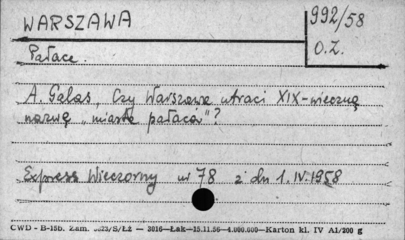 WARSZAWA
992/58
O.Ż.
Pałace.
A. Galas, Czy Warszawa utraci XIX-wieczną
nazwę „miasta pałaców"?
Express Wieczorny nr 78 z dn 1.IV.1958
CWD - B-15b. Zam. 5623/S/Łż — 3016—Łak—15.11.56—4.000.000—Karton kl. IV A1/200 g